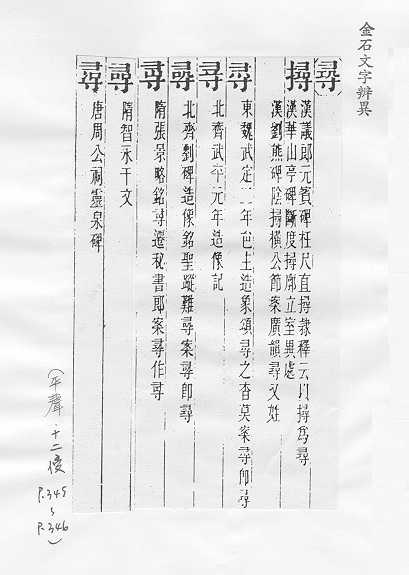 金石文字辨異
尋
撏
漢議郎元賓碑枉尺直撏隸釋云以撏為尋
漢華山亭碑斷度撏廓立室異處
漢劉熊碑陰撏橫公節案廣韻尋又姓
尋
東魏武定二年邑主造象頌尋之杳莫案尋即尋
尋
北齊武平元年造像記
尋
北齊劉碑造像銘聖蹤難尋案尋即尋
尋
隋張景略銘尋遷秘書郎案尋作尋
尋
隋智永千文
尋
唐周公祠靈泉碑
(平聲 十二侵
P.345
~
P.346)